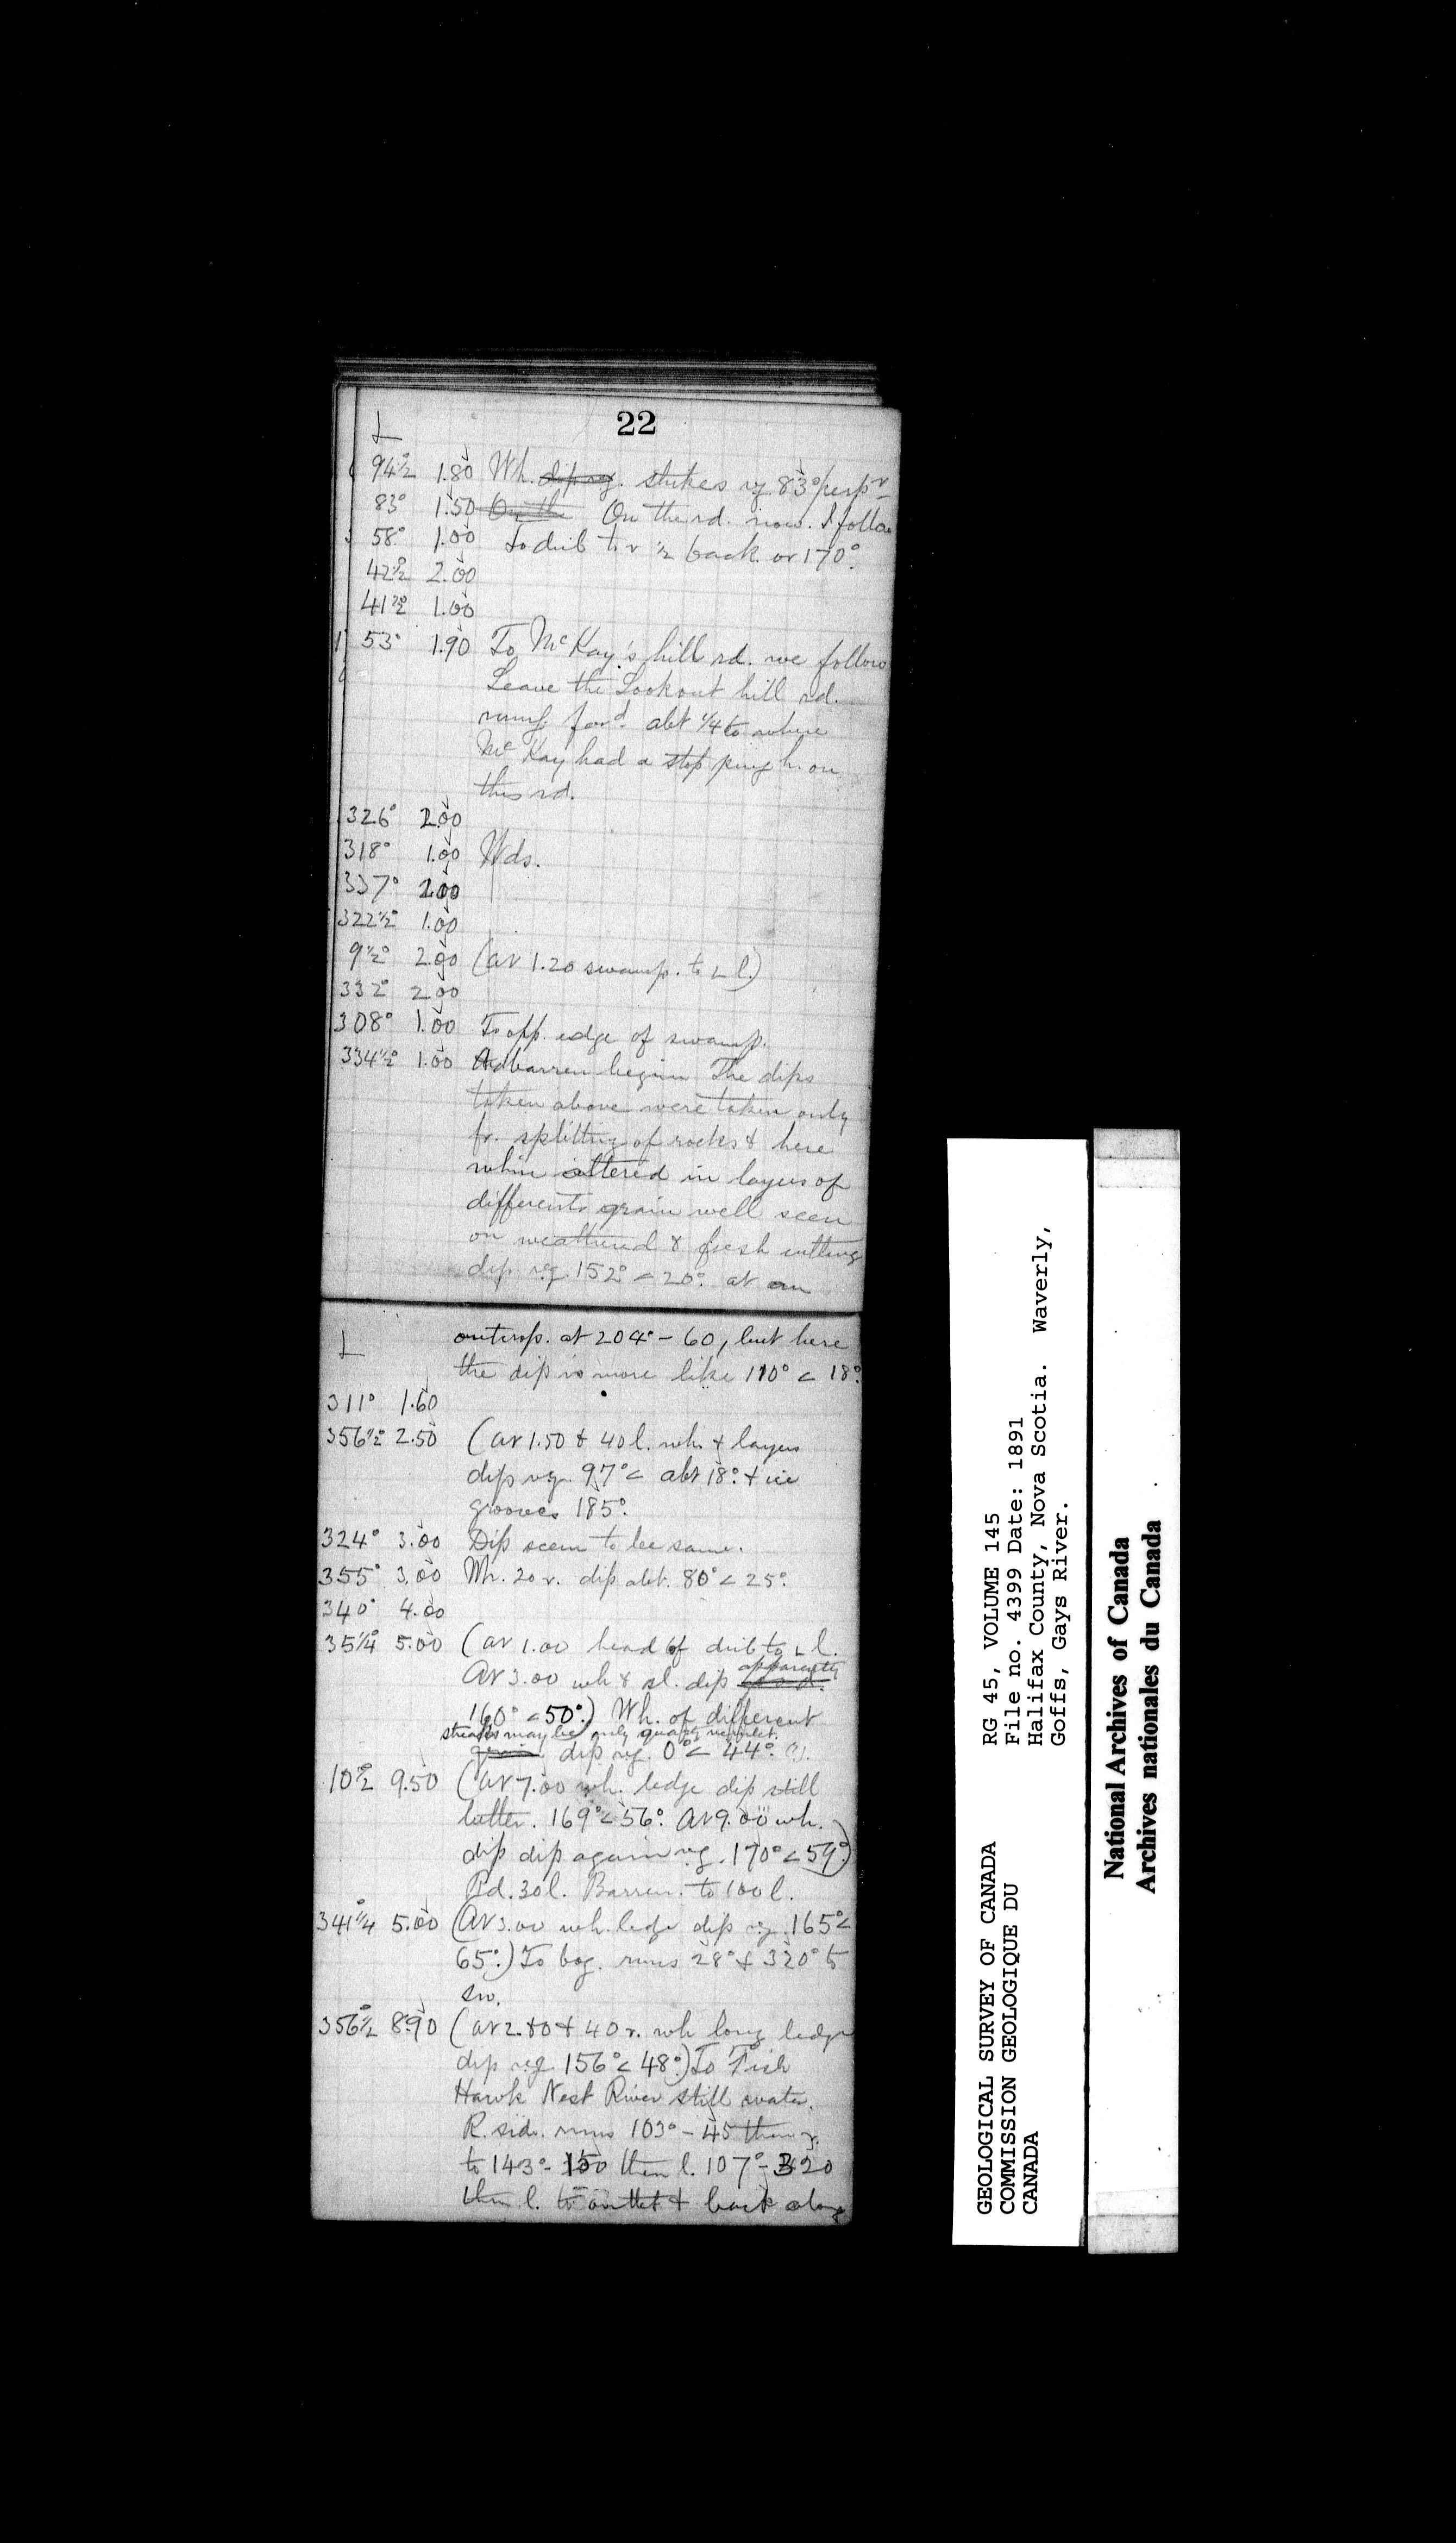 22
L
94½° 1.80 Wh. dip reg. strikes reg. 83° perpr
83° 1.50 On the On the rd. now. I follow
58° 1.00 To drib to r ½ back. or 170°.
42½° 2.00
41½° 1.00
53° 1.90 To McKay's hill rd. we follow
Leave the Lookout hill rd.
rung forwd. abt ¼ to where
McKay had a stopping h. on
this rd.
326° 2.00
318° 1.00 Wds.
337° 2.00
322½° 1.00
9½° 2.00 (at 1.20 swamp. to L l.)
332° 2.00
308° 1.00 To opp. edge of swamp.
334½° 1.00 barren begins The dips
taken above were taken only
fr. splitting of rocks & here
whin altered in layers of
different grain well seen
on weathered & fresh cutting
dip reg. 152° < 20°. at an
L outcrop. at 204° - 60, but here
the dip is more like 110° < 18°.
311° 1.60
356½° 2.50 (at 1.50 & 40 l. wh. & layers
dip reg. 97° < abt 18°. & ice
grooves 185°.
324° 3.00 Dip seem to be same.
355° 3.00 Wh. 20 r. dip abt. 80° < 25°.
340° 4.00
35¼° 5.00 (at 1.00 head of drib to L l.
apparently
At 3.00 wh & sl. dip
160° < 50°.) Wh. of different
streaks may be only quartz veinlet.
grain dip reg. 0° < 44°. (?).
10½° 9.50 (at 7.00 wh. ledge dip still
better. 169° < 56°. At 9.00 wh.
dip dip again reg. 170° < 59°.)
Rd. 30 l. Barren. to 100 l.
341¼° 5.00 (At 3.00 wh. ledge dip reg. 165° <
65°.) To bog. runs 28° & 320° to
sw.
356½° 8.90 (at 2.80 & 40 r. wh long ledge
dip reg. 156° < 48°.) To Fish
Hawk Nest River still water.
R. side. runs 103° - 45 then r.
to 143° - 150 then l. 107° - 320
then l. to outlet & back along
RG 45, VOLUME 145
File no. 4399 Date: 1891
Halifax County, Nova Scotia. Waverly,
Goffs, Gays River.
GEOLOGICAL SURVEY OF CANADA
COMMISSION GEOLOGIQUE DU
CANADA
National Archives of Canada
Archives nationales du Canada